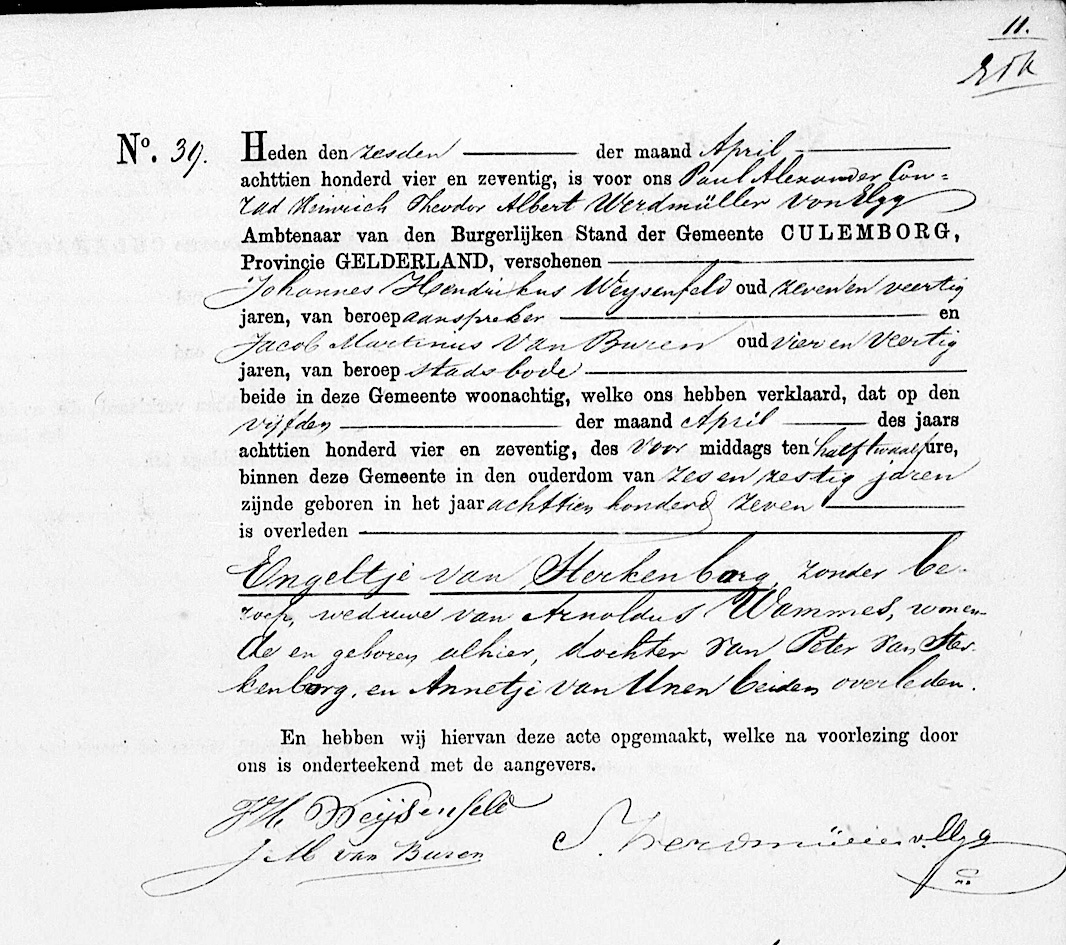 11.
No. 39. Heden den zesden der maand April
achttien honderd vier en zeventig, is voor ons Paul Alexander Con=
rad Heinrich Theodor Albert Werdmüller von Elgg
Ambtenaar van den Burgerlijken Stand der Gemeente CULEMBORG,
Provincie GELDERLAND, verschenen
Johannes Hendrikus Weysenfeld oud zeven en veertig
jaren, van beroep aanspreker en
Jacob Martinus van Buren oud vier en veertig
jaren, van beroep stadsbode
beide in deze Gemeente woonachtig, welke ons hebben verklaard, dat op den
vijfden der maand April des jaars
achttien honderd vier en zeventig, des voor middags ten half twaalf ure,
binnen deze Gemeente in den ouderdom van zes en zestig jaren
zijnde geboren in het jaar achttien honderd zeven
is overleden
Engeltje van Sterkenborg, zonder be-
roep, weduwe van Arnoldus Wammes, wonen-
de en geboren alhier, dochter van Peter van Ster-
kenborg, en Annetje van Unen beiden overleden.
En hebben wij hiervan deze acte opgemaakt, welke na voorlezing door
ons is onderteekend met de aangevers.
JH Weijsenfeld
J M van Buren
Werdmüller v. Elgg